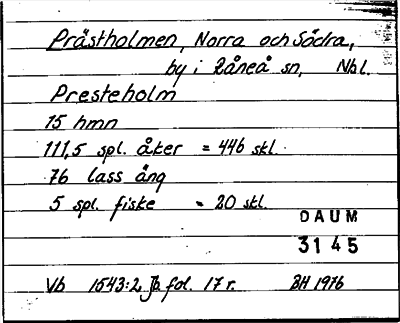 Prästholmen, Norra och Södra,
by i Råneå sn, Nbl.
Presteholm
15 hmn
111,5 spl. åker = 446 skl.
76 lass äng
5 spl. fiske = 20 skl.
DAUM
3145
Vb 1543:2 Jb fol. 17 r. BH 1976